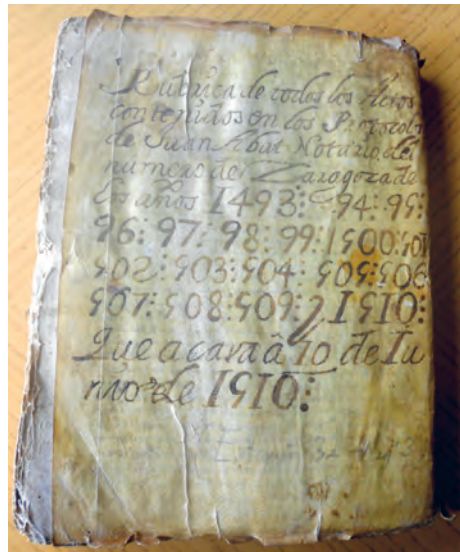 Rubrica de todos los Actos
contenidos en los Protocolos
de Juan Abat Notario del
numero de Zaragoza de
los años 1493: 94: 95:
96: 97: 98: 99: 1500: 501
502: 503: 504: 505: 506
507: 508: 509: y 1510:
Que acava â 10 de Iu
nio de 1510: